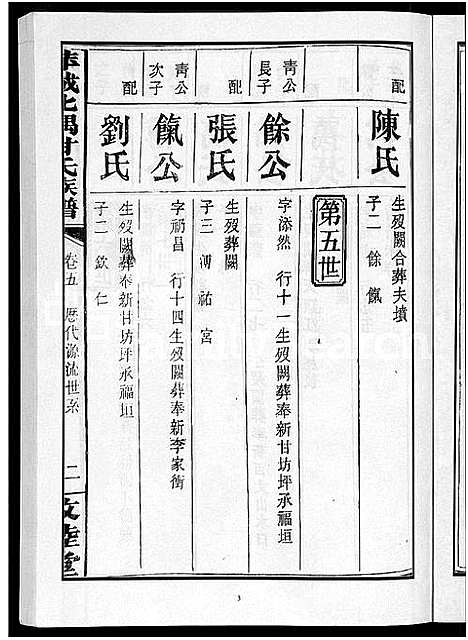 配
陳氏
生歿闕合葬夫墳
子二 餘 氤
第五世
青公長子
餘公
字添然 行十一生歿闕葬奉新甘坊坪承福垣
配
張氏
生歿葬闕
子三 溥 祐 宮
青公次子
氤公
字礽昌 行十四生歿闕葬奉新李家衝
配
劉氏
生歿闕葬奉新甘坊坪承福垣
子二 欽 仁
北隅甘氏族譜
卷五 歷代源流世系
二
文陸堂
3